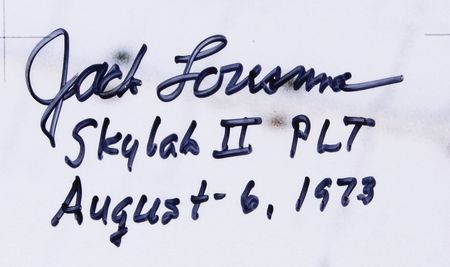 Jack Lousma
Skylab II PLT
August 6, 1973